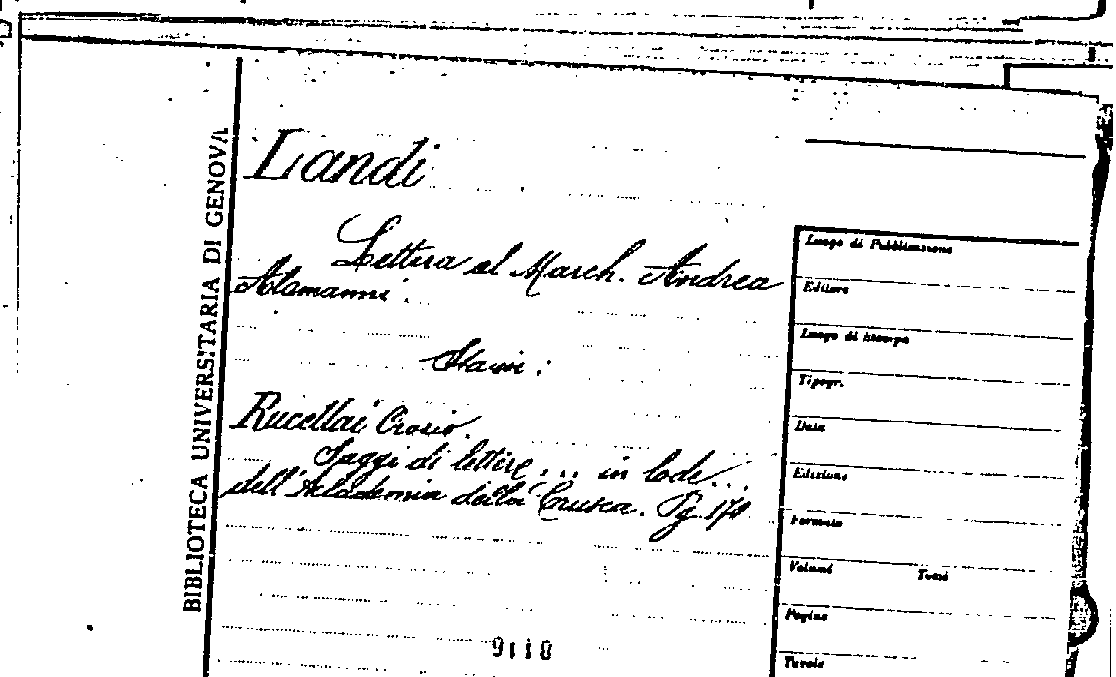 BIBLIOTECA UNIVERSITARIA DI GENOVA
Landi
Lettera al March. Andrea
Alamanni.
Rucellai Orazio.
Saggi di lettere... in lode...
dell'Accademia della Crusca. Pg.
9110
Luogo di Pubblicazione
Editore
Luogo di stampa
Tipogr.
Data
Edizione
Formato
Volumi Tomi
Pagine
Tavole